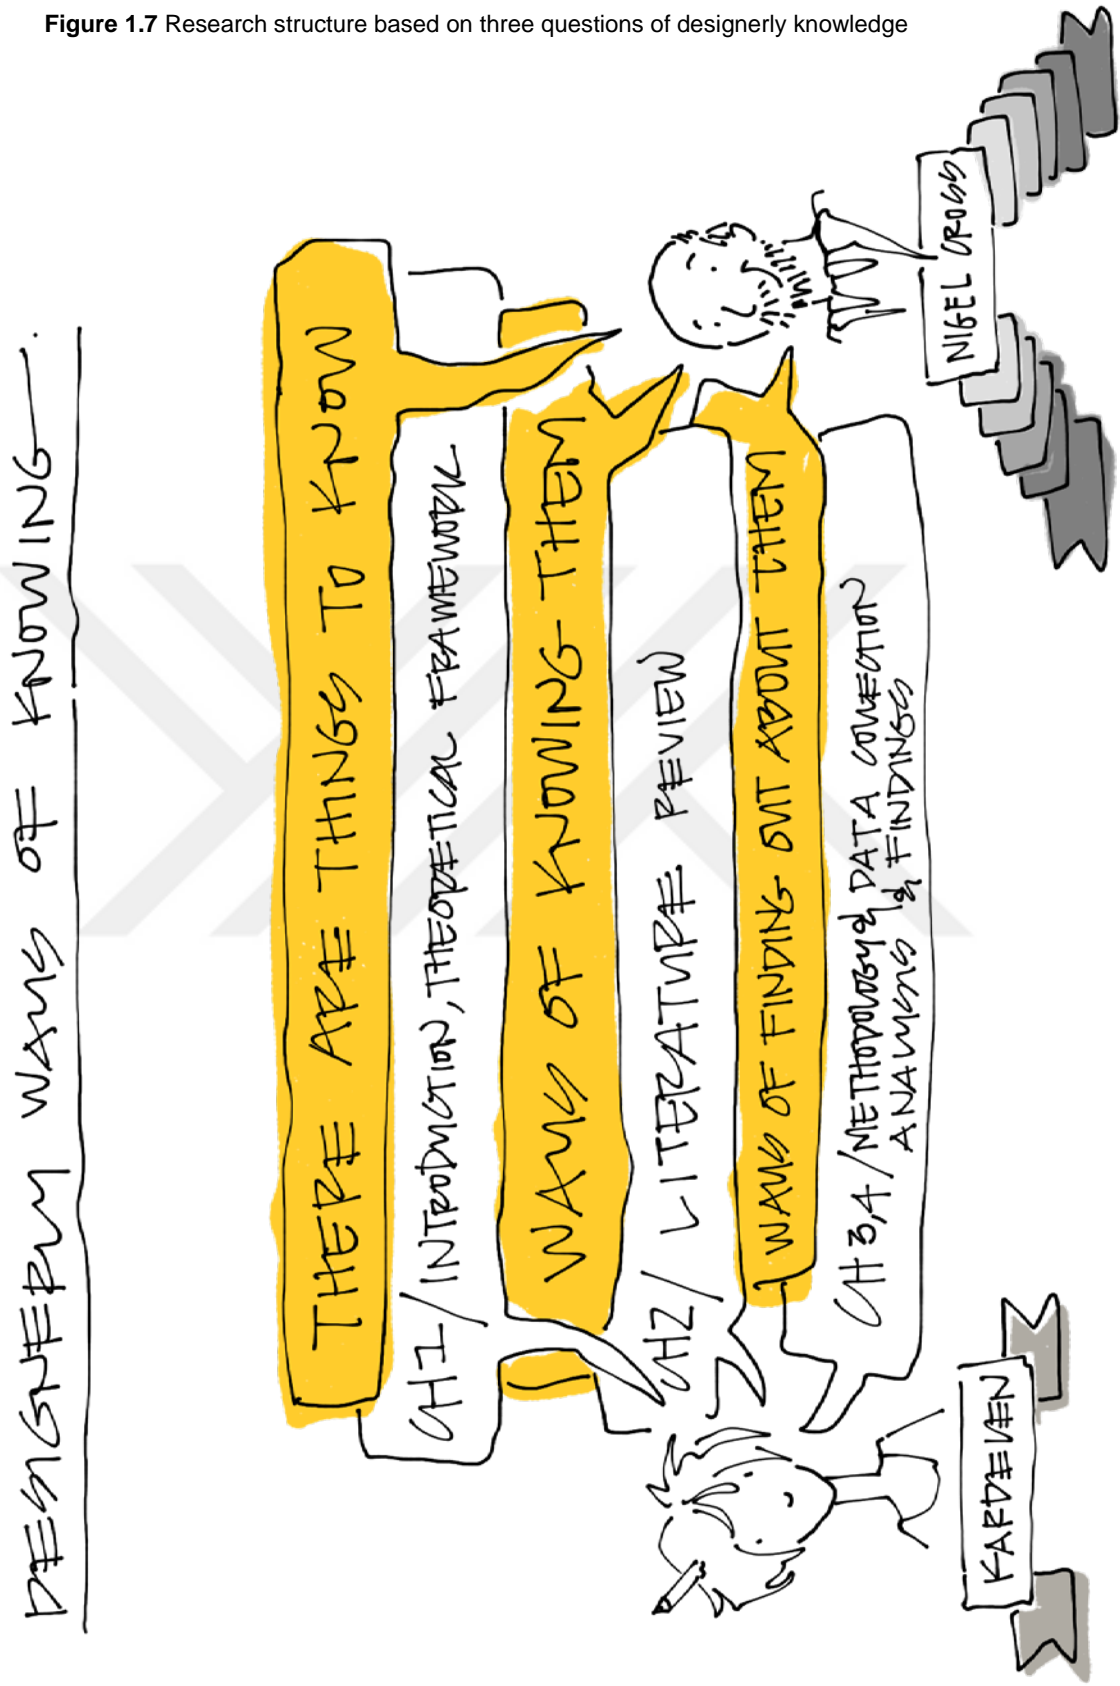 Figure 1.7 Research structure based on three questions of designerly knowledge
DESIGNERLY WAYS OF KNOWING
THERE ARE THINGS TO KNOW
CH1/ INTRODUCTION, THEORETICAL FRAMEWORK
WAYS OF KNOWING THEM
CH2/ LITERATURE REVIEW
WAYS OF FINDING OUT ABOUT THEM
CH 3,4/ METHODOLOGY & DATA COLLECTION
ANALYSIS & FINDINGS
KARDELEN
NIGEL CROSS